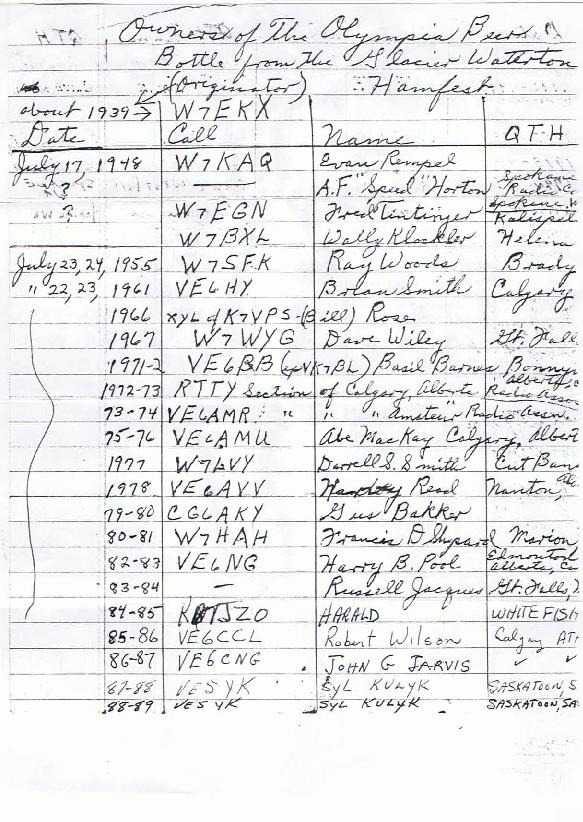 Owners of The Olympia Beer
Bottle from the Glacier Waterton
(Originator) Hamfest
about 1939 → W7EKX
Date Call Name QTH
July 17, 1948 W7KAQ Evan Rempel
? — A.F. "Speed" Horton Spokane Radio C
? W7EGN Fred Tintinger Spokane, W Kalispel
W7BXL Wally Klockler Helena
July 23, 24, 1955 W7SFK Ray Woods Brady
" 22, 23, 1961 VE6HY Brian Smith Calgary
1966 XYL of K7VPS - (Bill) Rose
1967 W7WYG Dave Wiley Gt. Fall
1971-2 VE6BB (ex VK7BL) Basil Barnes Bonny
1972-73 RTTY Section of Calgary, Alberta Alberta, C Radio Asso
73-74 VE6AMR " " " Amateur Radio Assn.
75-76 VE6AMU Abe MacKay Calgary, Albert
1977 W7LVY Darrell S. Smith Cut Ban
1978 VE6AVV Read Nanton, Al
79-80 CG6AKY Gus Bakker
80-81 W7HAH Francis D Shepard Marion,
82-83 VE6NG Harry B. Pool Edmonton Alberta, Ca
83-84 — Russell Jacques Gt. Falls,
84-85 HARALD WHITEFISH
85-86 VE6CCL Robert Wilson Calgary
86-87 VE6CNG JOHN G JARVIS ✓ ✓
87-88 VE5YK SYL KULYK SASKATOON, S
88-89 VE5YK SYL KULYK SASKATOON, SA